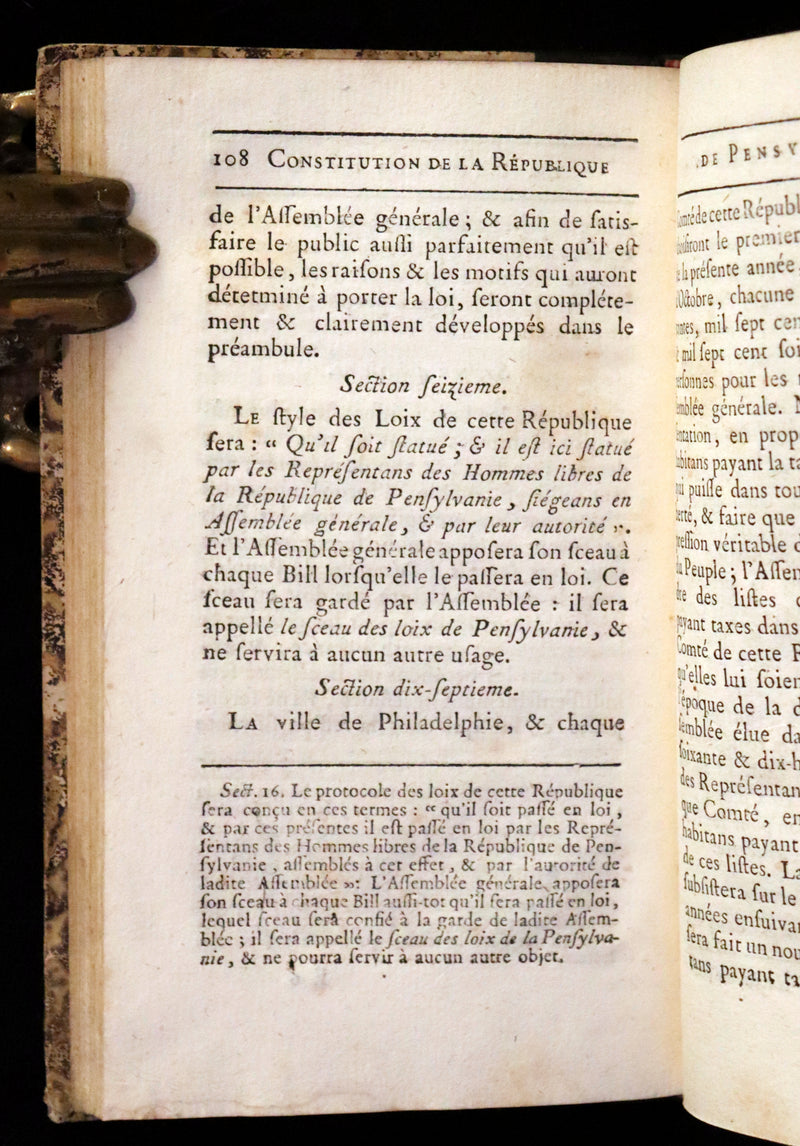 108 CONSTITUTION DE LA RÉPUBLIQUE
de l'Aſſemblée générale ; & afin de ſatis-
faire le public auſſi parfaitement qu'il eſt
poſſible, les raiſons & les motifs qui auront
détetminé à porter la loi, ſeront compléte-
ment & clairement développés dans le
préambule.
Section ſeizieme.
LE ſtyle des Loix de cette République
ſera : “ Qu'il ſoit ſtatué ; & il eſt ici ſtatué
par les Repréſentans des Hommes libres de
la République de Penſylvanie, ſiégeans en
Aſſemblée générale, & par leur autorité ”.
Et l'Aſſemblée générale appoſera ſon ſceau à
chaque Bill lorſqu'elle le paſſera en loi. Ce
ſceau ſera gardé par l'Aſſemblée : il ſera
appellé le ſceau des loix de Penſylvanie, &
ne ſervira à aucun autre uſage.
Section dix-ſeptieme.
LA ville de Philadelphie, & chaque
Sect. 16. Le protocole des loix de cette République
ſera conçu en ces termes : “ qu'il ſoit paſſé en loi ,
& par ces préſentes il eſt paſſé en loi par les Repré-
ſentans des Hommes libres de la République de Pen-
ſylvanie , aſſemblés à cet effet , & par l'autorité de
ladite Aſſemblée ”: L'Aſſemblée générale appoſera
ſon ſceau à chaque Bill auſſi-tot qu'il ſera paſſé en loi,
lequel ſceau ſerà confié à la garde de ladite Aſſem-
blée ; il ſera appellé le ſceau des loix de la Penſylva-
nie, & ne pourra ſervir à aucun autre objet.
DE PENSY
Comté de cette Républ
le premier
la préſente année
d'Octobre, chacune
mil ſept cen
mil ſept cent ſoi
pour les
générale.
en prop
payant la ta
puiſſe dans tou
& faire que
véritable
Peuple ; l'Aſſem
des liſtes
payant taxes dans
Comté de cette R
qu'elles lui ſoien
époque de la d
élue da
ſoixante & dix-h
des Repréſentan
que Comté, en
habitans payant
de ces liſtes. La
ſubſiſtera ſur le
années enſuivan
ſera fait un nou
tans payant ta